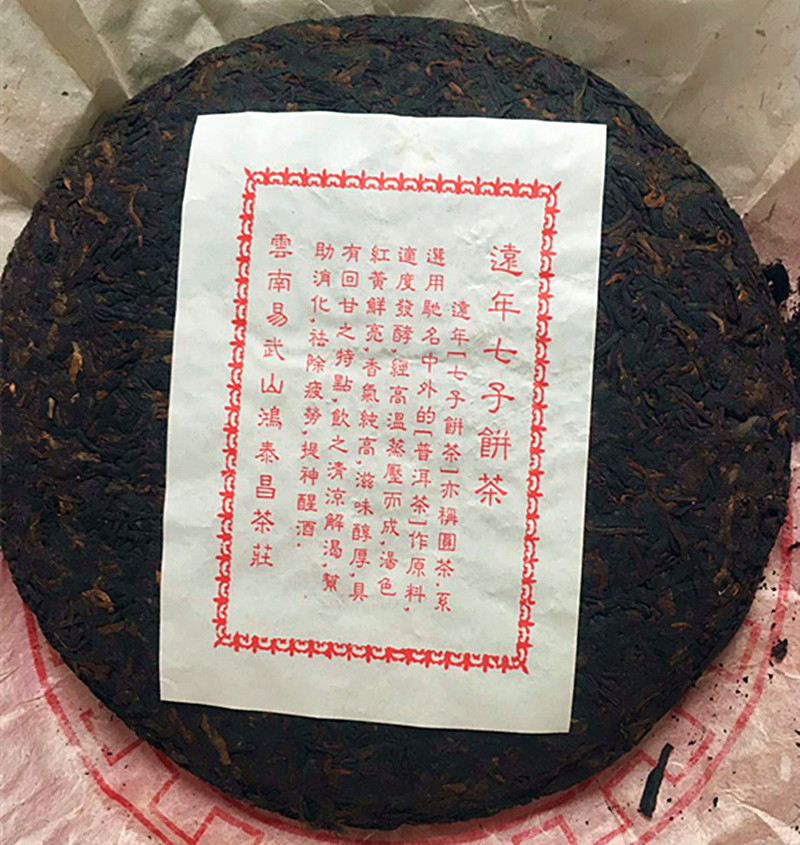 遠年七子餅茶
遠年「七子餅茶」亦稱圓茶，系
選用馳名中外的「普洱茶」作原料，
適度發酵，經高溫蒸壓而成，湯色
紅黃鮮亮，香氣純高，滋味醇厚，具
有回甘之特點，飲之清涼解渴，幫
助消化，祛除疲勞，提神醒酒。
雲南易武山鴻泰昌茶莊